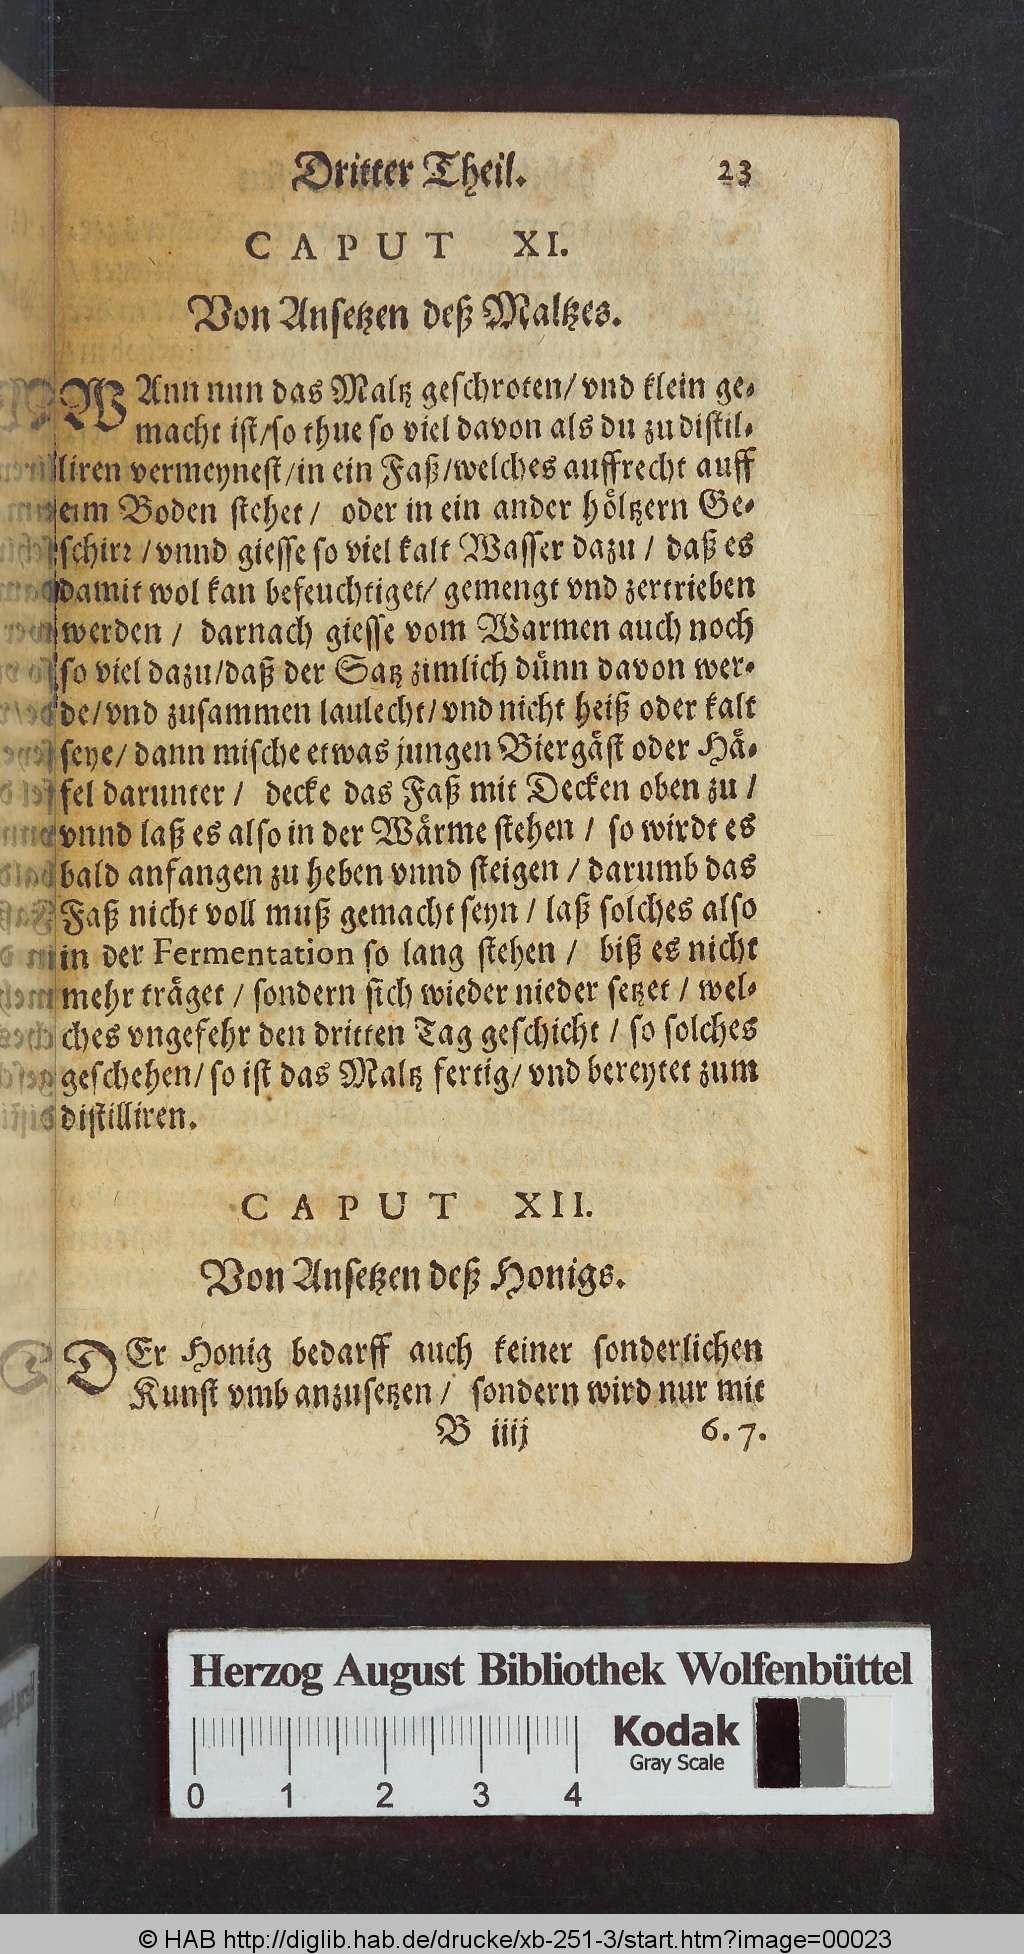 Dritter Theil. 23
CAPUT XI.
Von Ansetzen deß Maltzes.
WAnn nun das Maltz geschroten/ vnd klein ge-
macht ist/so thue so viel davon als du zu distil-
liren vermeynest/in ein Faß/welches auffrecht auff
eim Boden stehet/ oder in ein ander höltzern Ge-
schirr/vnnd giesse so viel kalt Wasser dazu/ daß es
damit wol kan befeuchtiget/ gemengt vnd zertrieben
werden/ darnach giesse vom Warmen auch noch
so viel dazu/daß der Satz zimlich dünn davon wer-
de/vnd zusammen laulecht/vnd nicht heiß oder kalt
seye/ dann mische etwas jungen Biergäst oder Hä-
fel darunter/ decke das Faß mit Decken oben zu/
vnnd laß es also in der Wärme stehen/ so wirdt es
bald anfangen zu heben vnnd steigen/ darumb das
Faß nicht voll muß gemacht seyn/ laß solches also
in der Fermentation so lang stehen/ biß es nicht
mehr träget/ sondern sich wieder nieder setzet/ wel-
ches vngefehr den dritten Tag geschicht/ so solches
geschehen/ so ist das Maltz fertig/ vnd bereytet zum
distilliren.
CAPUT XII.
Von Ansetzen deß Honigs.
DEr Honig bedarff auch keiner sonderlichen
Kunst vmb anzusetzen/ sondern wird nur mit
B iiij 6.7.
Herzog August Bibliothek Wolfenbüttel
Kodak
Gray Scale
0 1 2 3 4
© HAB http://diglib.hab.de/drucke/xb-251-3/start.htm?image=00023